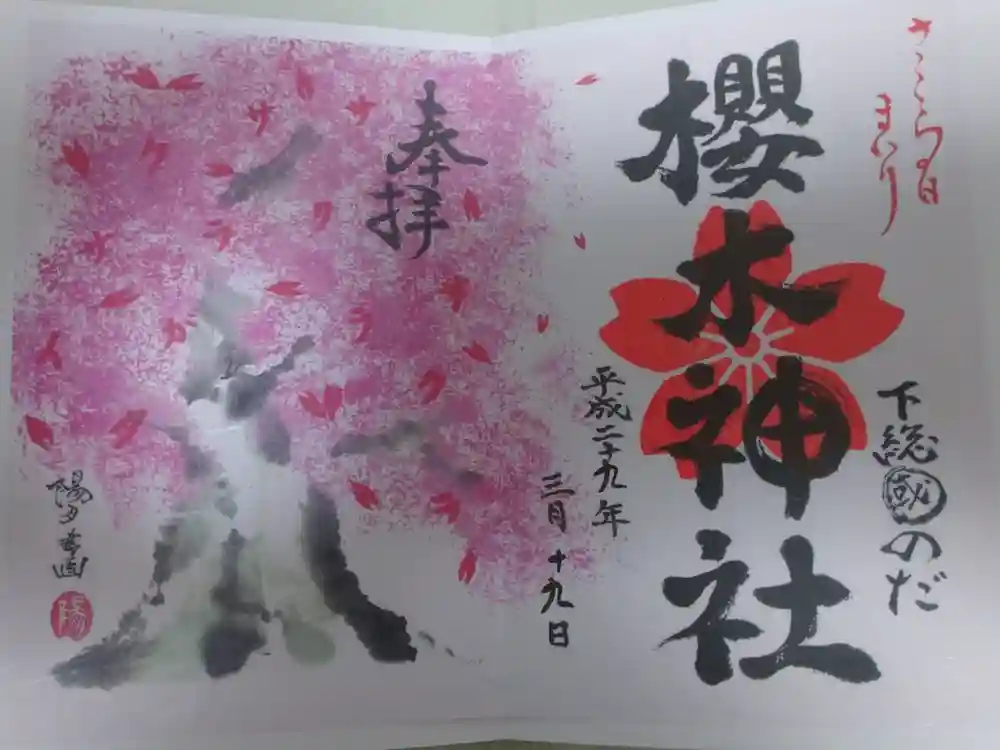 さくらの日
まいり
下総國のだ
櫻木神社
平成二十九年
三月十九日
奉拝
陽夕
陽